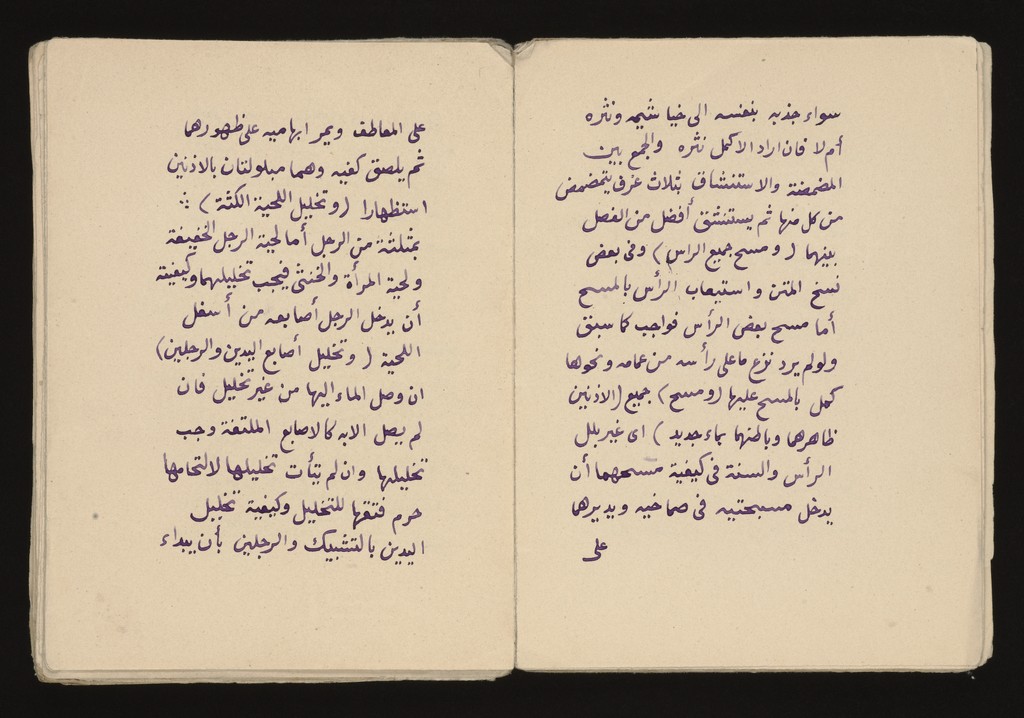 سواء جذبه بنفسه الى خياشيمه ونثره
أم لا فان اراد الاكمل نثره والجمع بين
المضمضة والاستنشاق بثلاث غرف يتمضمض
من كل منها ثم يستنشق أفضل من الفصل
بينهما (ومسح جميع الراس) وفى بعض
نسخ المتن واستيعاب الرأس بالمسح
أما مسح بعض الرأس فواجب كما سبق
ولو لم يرد نزع ما على رأسه من عمامه ونحوها
كمل بالمسح عليها (ومسح) جميع (الاذنين
ظاهرهما وباطنهما بماء جديد) اى غير بلل
الرأس والسنة فى كيفية مسحهما أن
يدخل مسبحتيه فى صماخيه ويديرهما
على
على المعاطف ويمر ابهاميه على ظهورهما
ثم يلصق كفيه وهما مبلولتان بالاذنين
استظهارا (وتخليل اللحية الكثة)
بمثلثة من الرجل أما لحية الرجل الخفيفة
ولحية المرأة والخنثى فيجب تخليلهما وكيفيته
أن يدخل الرجل أصابعه من أسفل
اللحية (وتخليل أصابع اليدين والرجلين)
ان وصل الماء اليها من غير تخليل فان
لم يصل الابه كالاصابع الملتفة وجب
تخليلها وان لم يتأت تخليلها لالتحامها
حرم فتقها للتخليل وكيفية تخليل
اليدين بالتشبيك والرجلين بأن يبداء